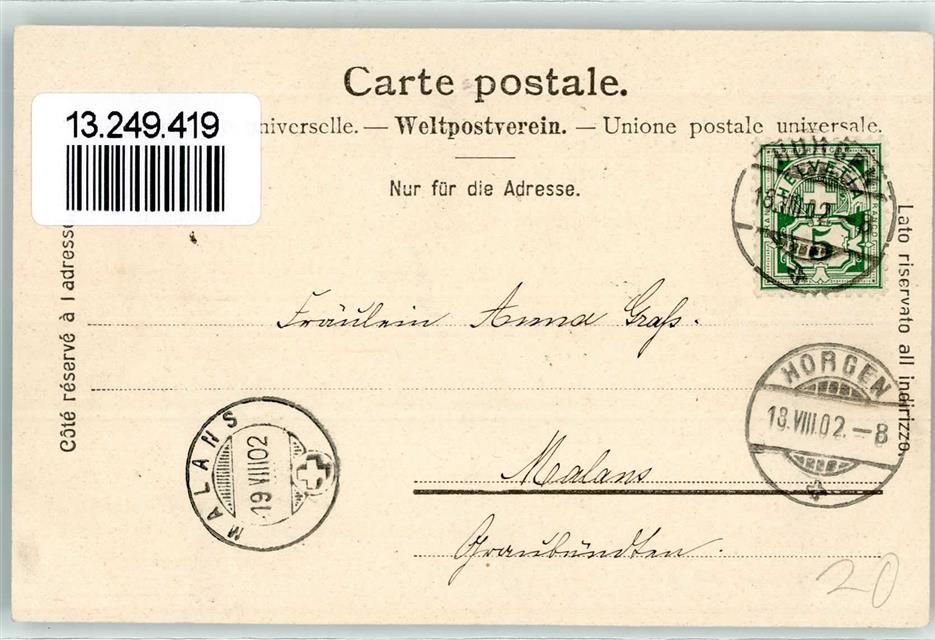 Carte postale.
13.249.419
niverselle. — Weltpostverein. — Unione postale universale.
Nur für die Adresse.
HORGEN
HELVETIA
FRANCO
5
18.VIII.02.–8
Côté réservé à l adresse
Lato riservato all indirizzo.
Fräulein Anna Graß.
HORGEN
18.VIII.02.–8
MALANS
19 VIII 02
Malans
Graubündten.
20